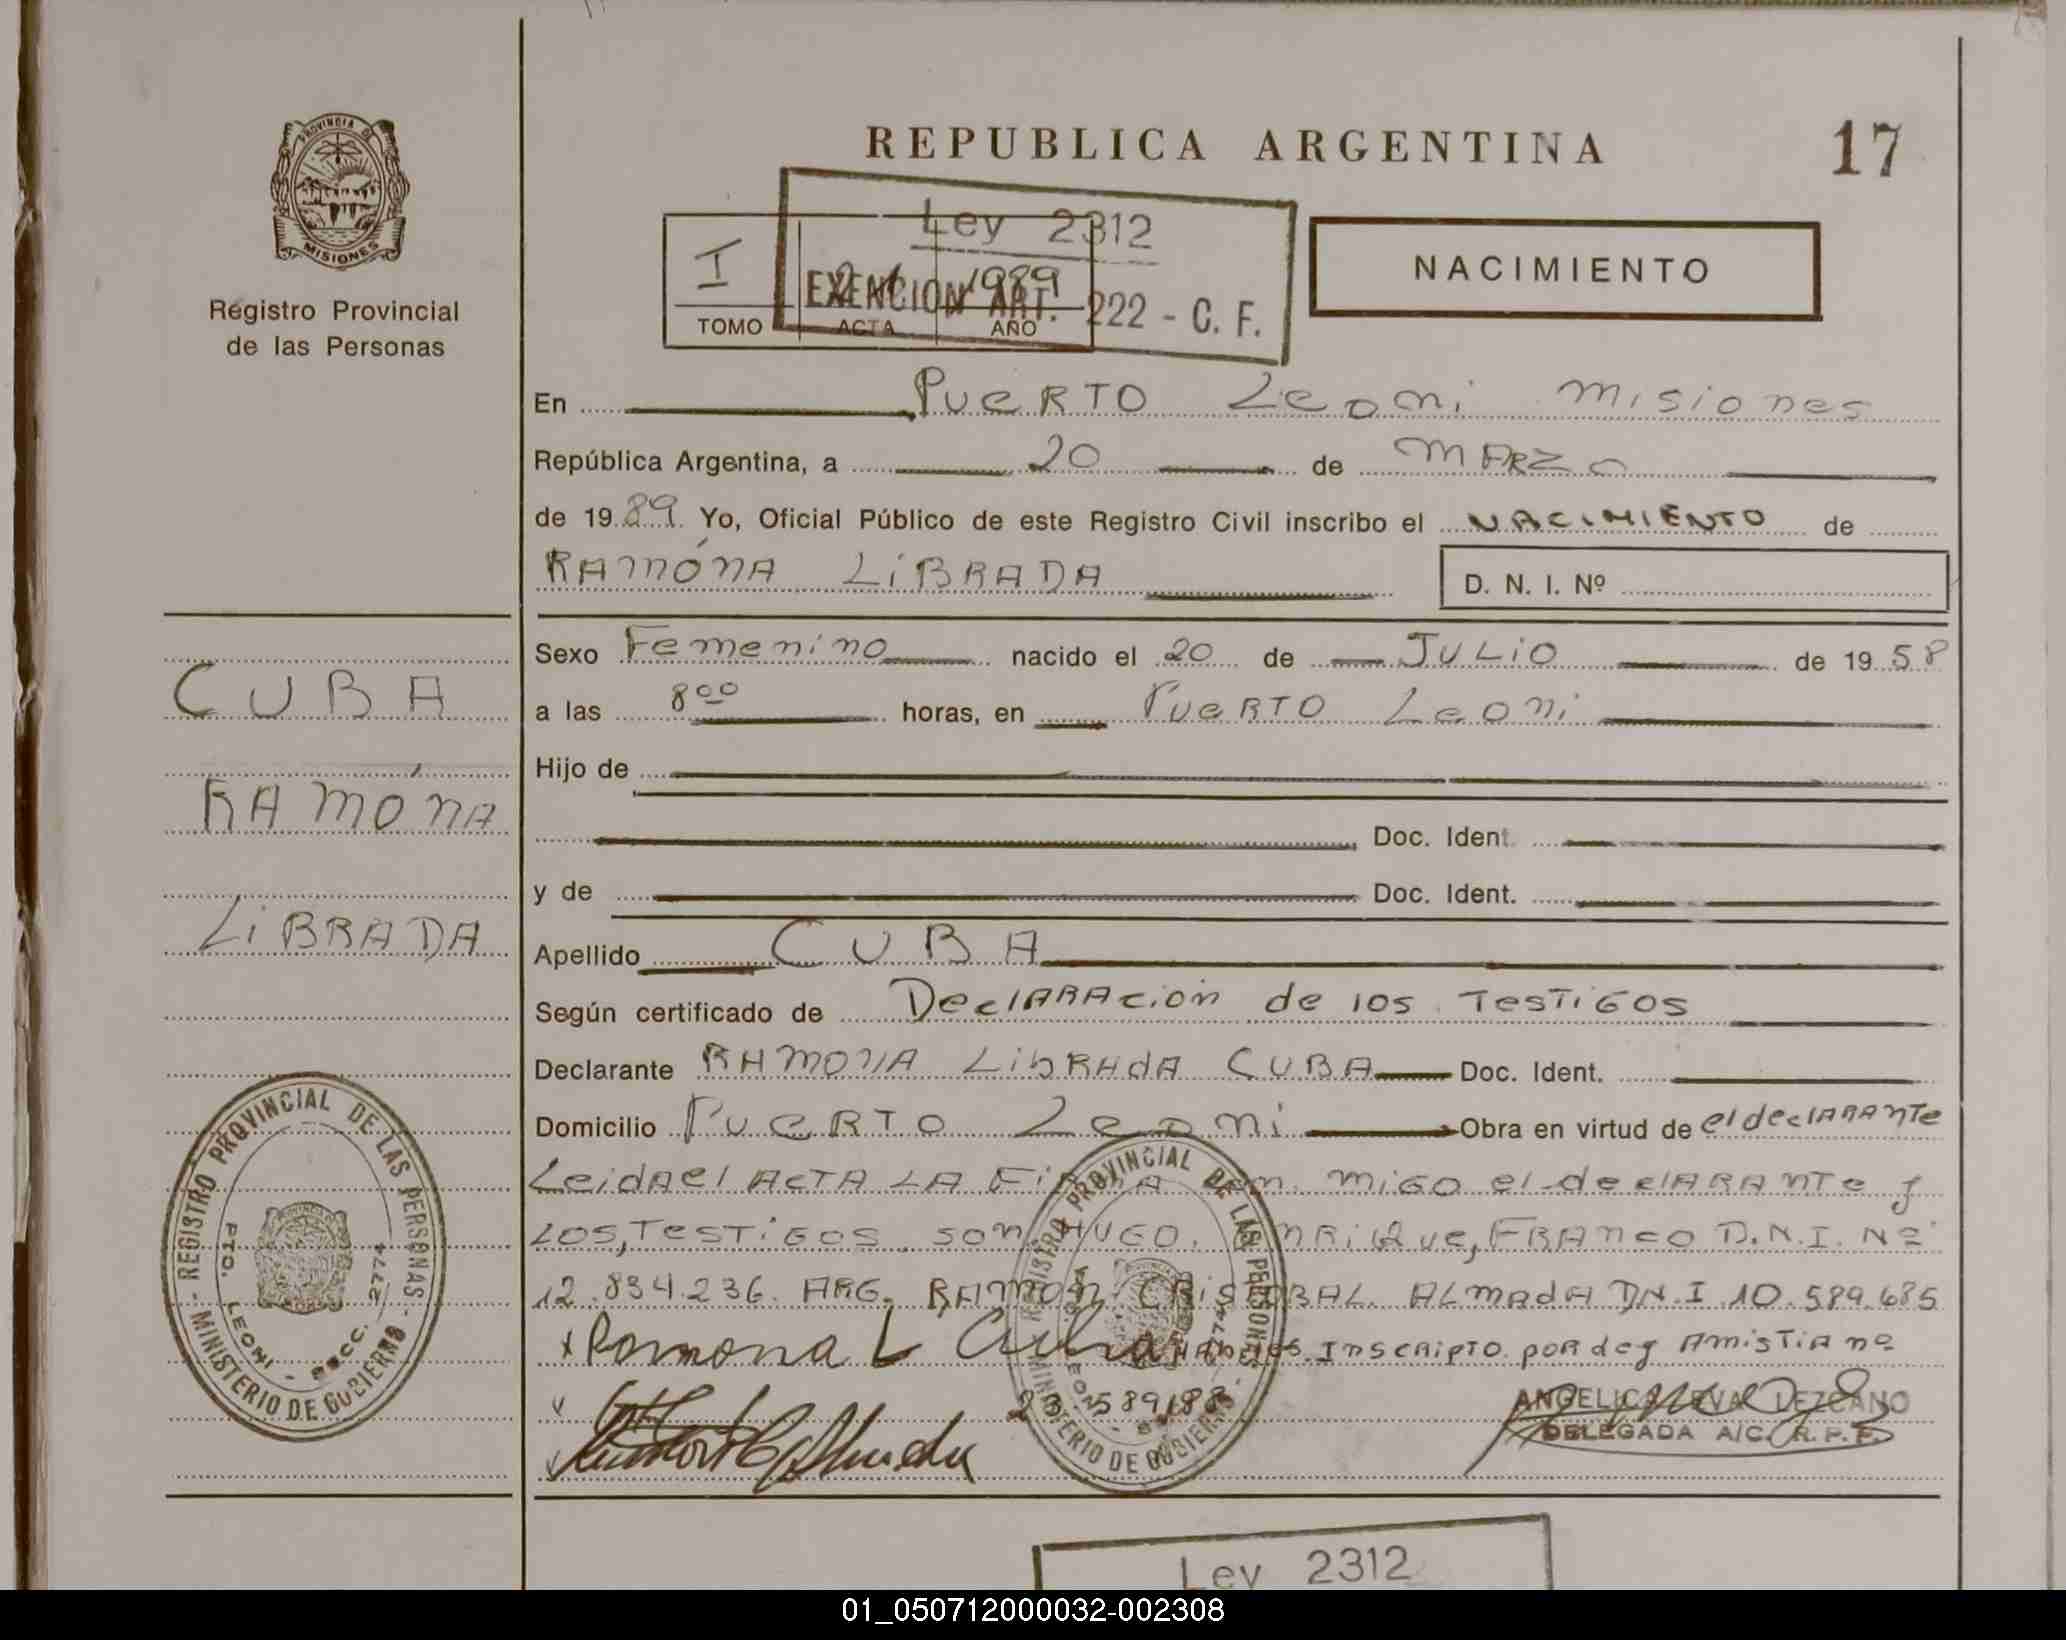 PROVINCIA DE
MISIONES
Registro Provincial
de las Personas
REPUBLICA ARGENTINA
17
Ley 2312
EXENCION ART. 222 - C. F.
I 1989
TOMO ACTA AÑO
NACIMIENTO
En PUERTO Leoni Misiones
República Argentina, a 20 de MARZO
de 1989 Yo, Oficial Público de este Registro Civil inscribo el NACIMIENTO de
RAMÓNA LiBRADA
D. N. I. Nº
Sexo Femenino nacido el 20 de JULiO de 1958
a las 8⁰⁰ horas, en PUeRTO Leoni
Hijo de
Doc. Ident.
y de Doc. Ident.
Apellido CUBA
Según certificado de DeclARAción de los TesTiGOS
Declarante RAMONA LibRAdA CUBA Doc. Ident.
Domicilio PUeRTO Leoni Obra en virtud de el declARANTe
LeidA el ACTA LA FiRMA con migo el declARANTe y
LOS, TesTiGOS son HUGO. eNRiQue, FRANco D.N.I. Nº
12.834.236. ARG. RAMON CRiSTOBAL ALmAdA D.N.I 10.589.685
x Ramona L Cuba Inscripto por dey Amistia nº
23.589.188
ANGELICA EVA LEZCANO
DELEGADA A/C. R. P. P.
CUBA
RAMÓNA
LiBRADA
REGISTRO PROVINCIAL DE LAS PERSONAS - MINISTERIO DE GOBIERNO -
PTO. LEONI - SECC. 2774
REGISTRO PROVINCIAL DE LAS PERSONAS - MINISTERIO DE GOBIERNO
Ley 2312
01_050712000032-002308